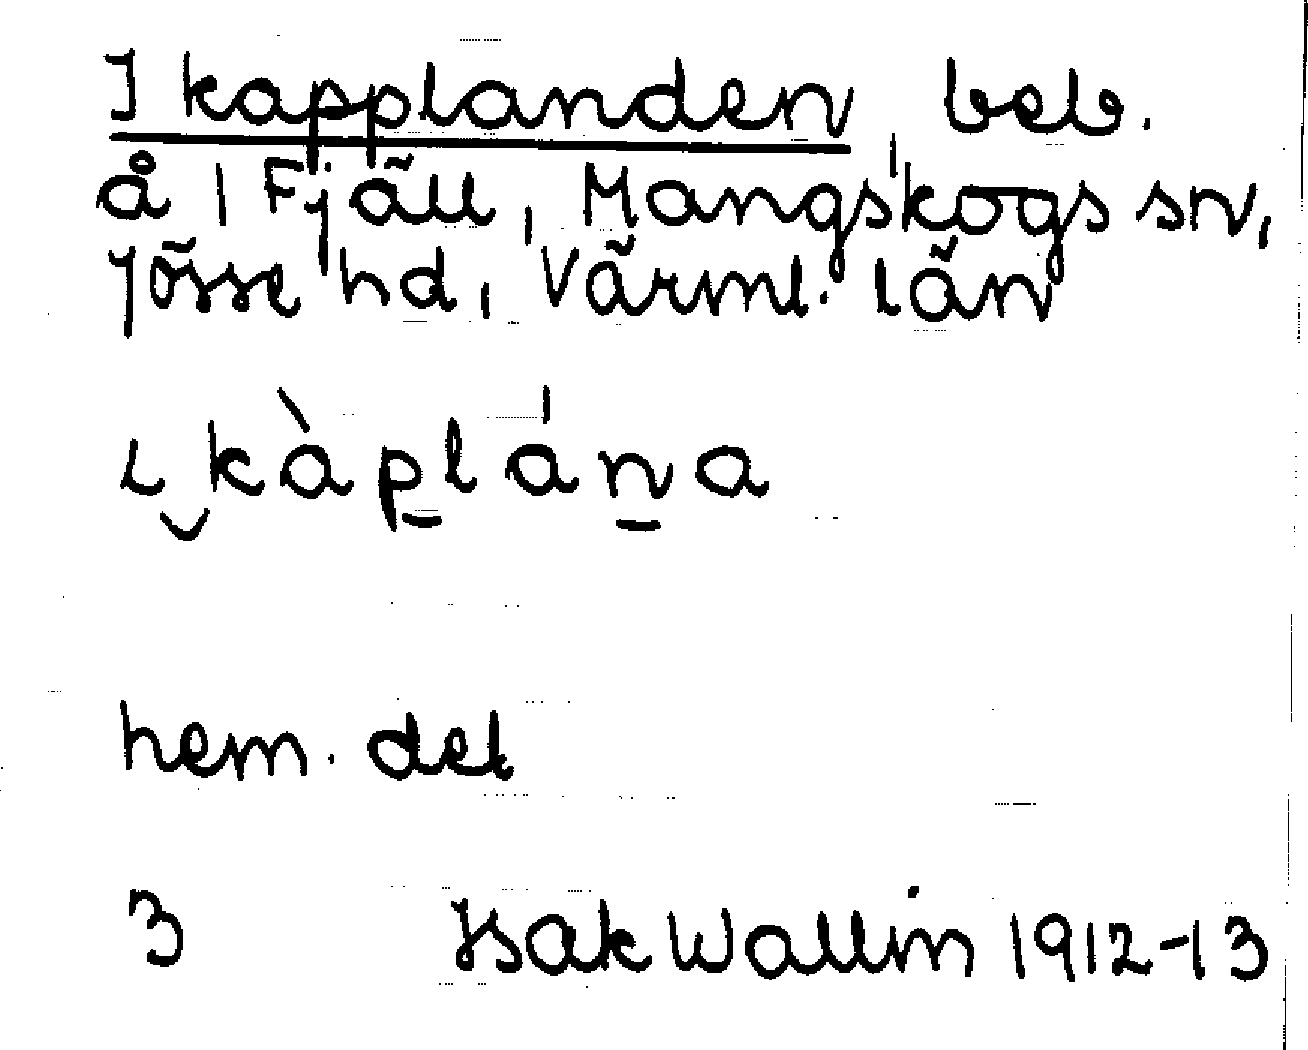 I kapplanden, beb.
å 1 Fjäll, Mangskogs sn,
Jösse hd, Värml. län
ɩ‿kàpl̀ána
hem. del
3 Isak Wallin 1912-13